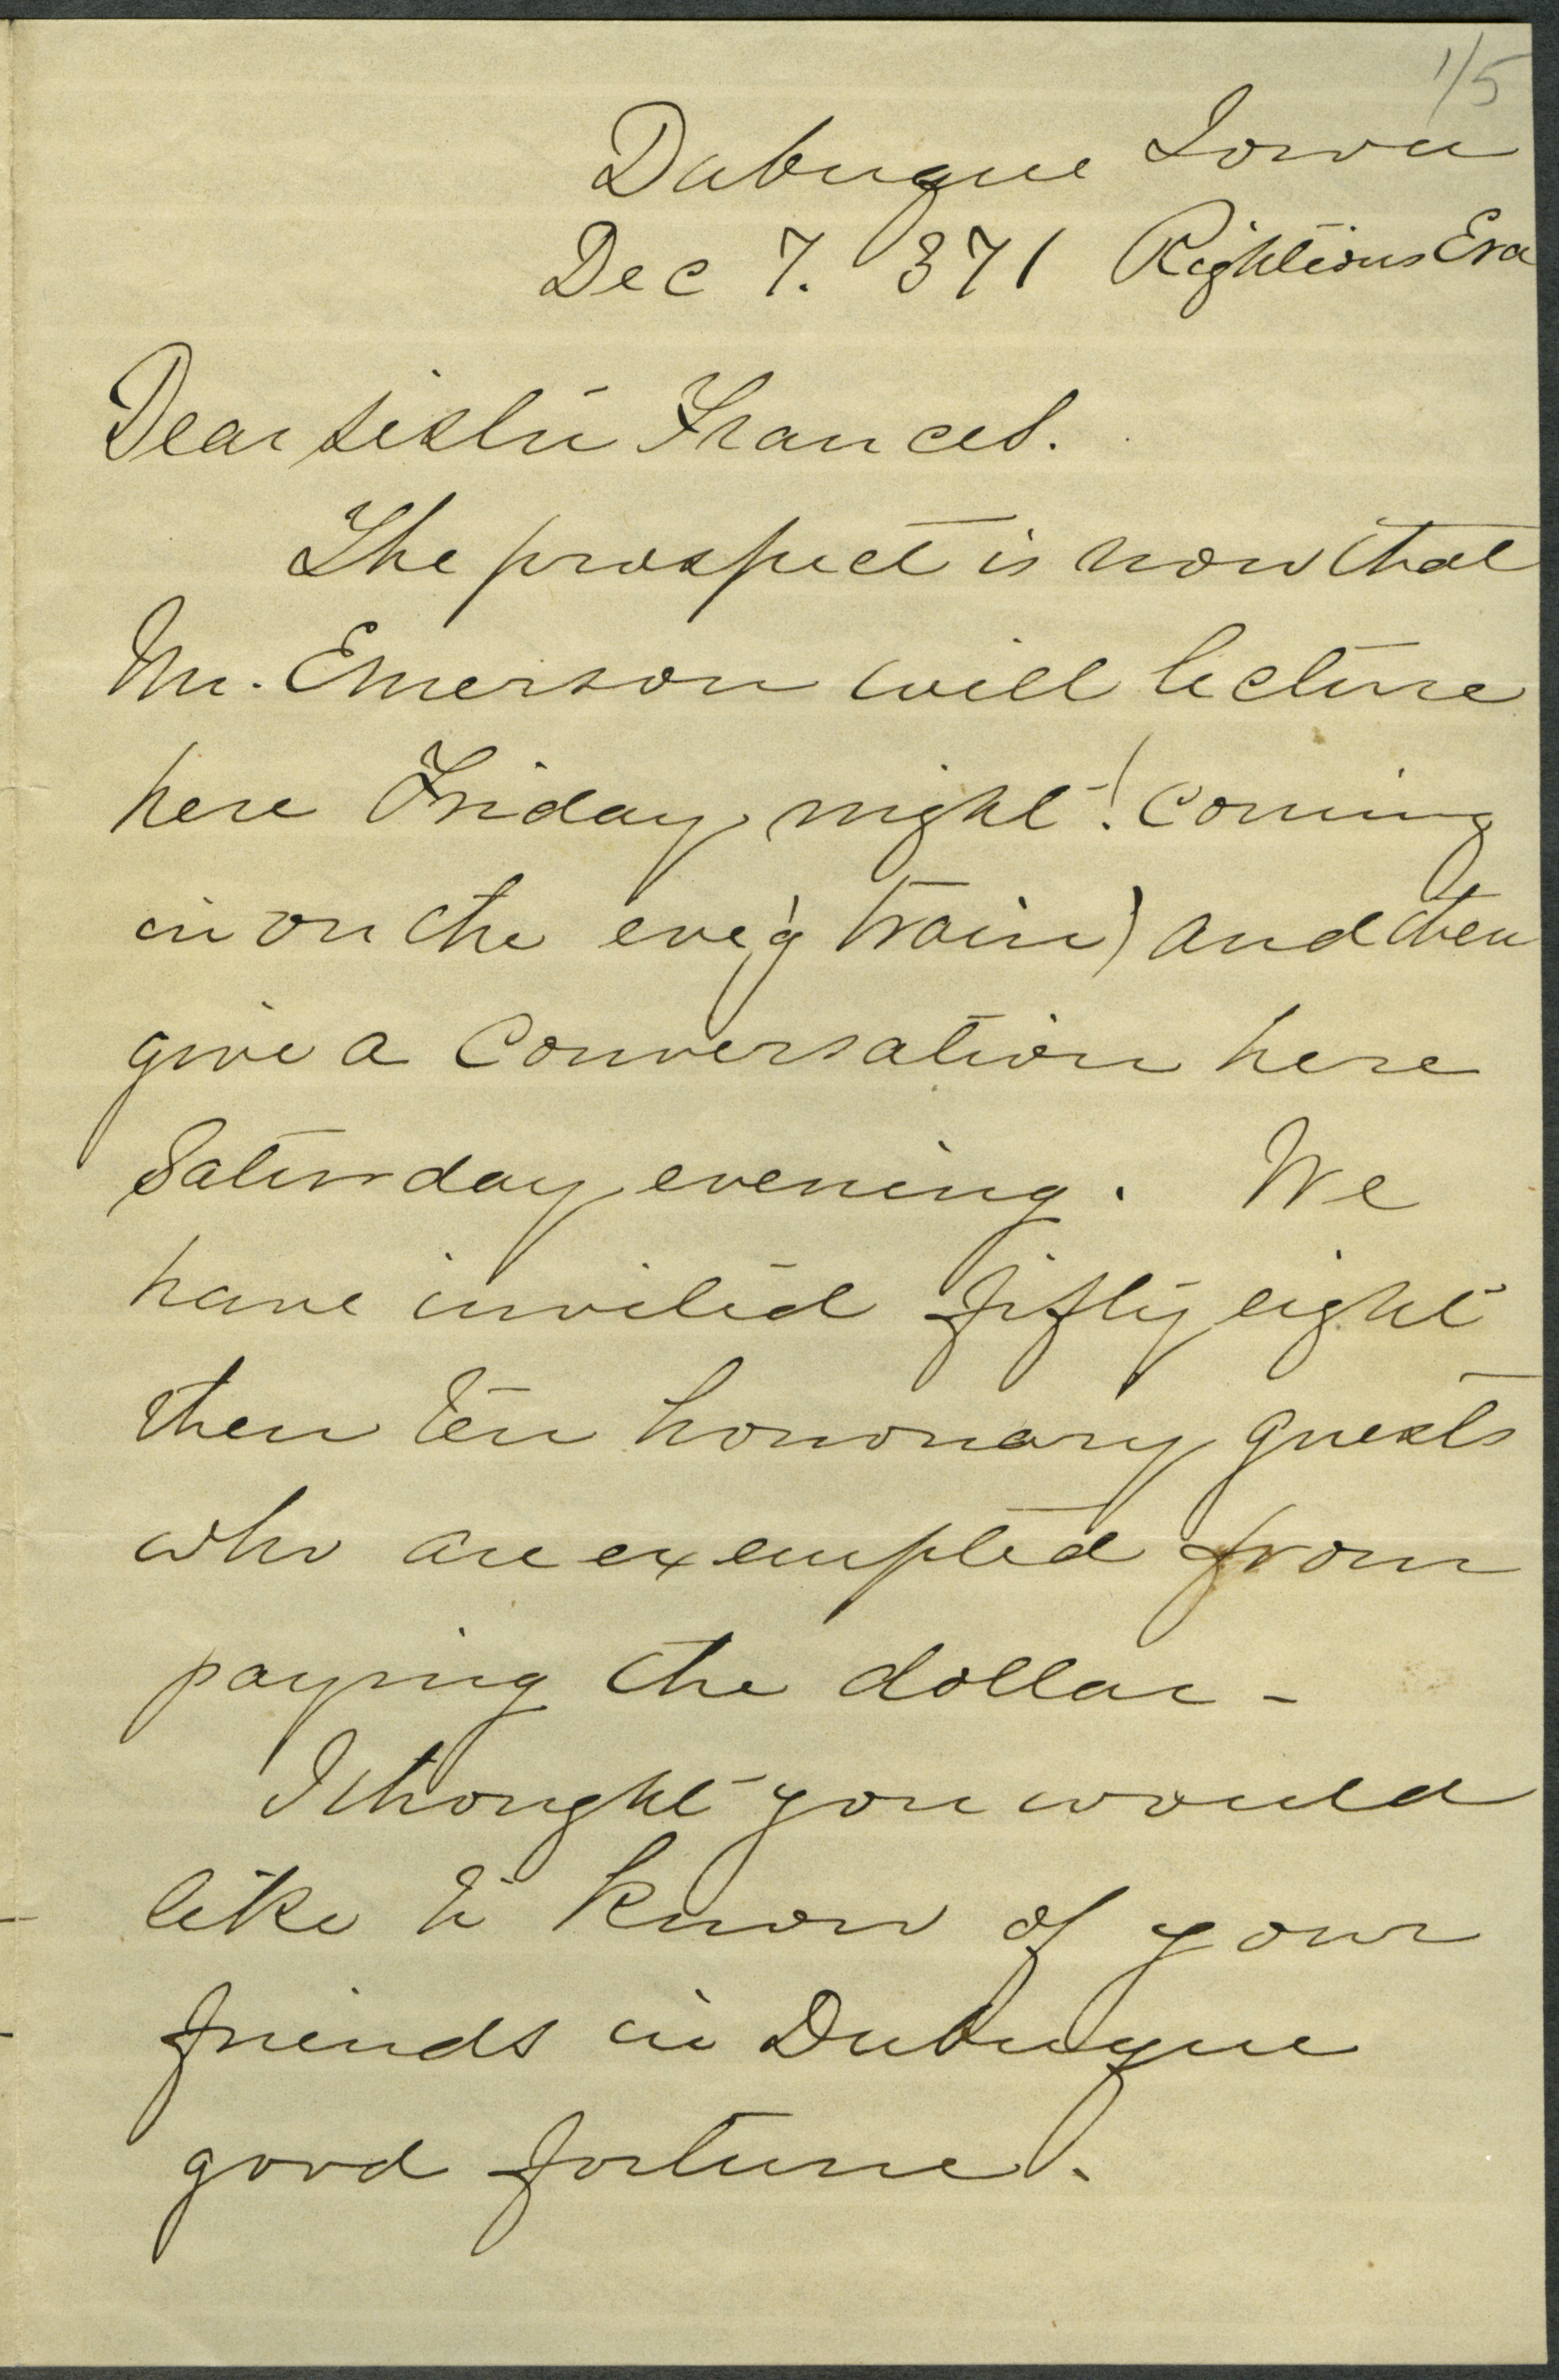 1/5
Dubuque Iowa
Dec 7. 371 Righteous Era
Dear sister Frances.
The prospect is now that
Mr. Emerson will lecture
here Friday night! (coming
in on the eve'g train) and then
give a Conversation here
Saturday evening. We
have invited fifty eight
then ten honorary guests
who are exempted from
paying the dollar -
I thought you would
like to know of your
friends in Dubuque
good fortune.